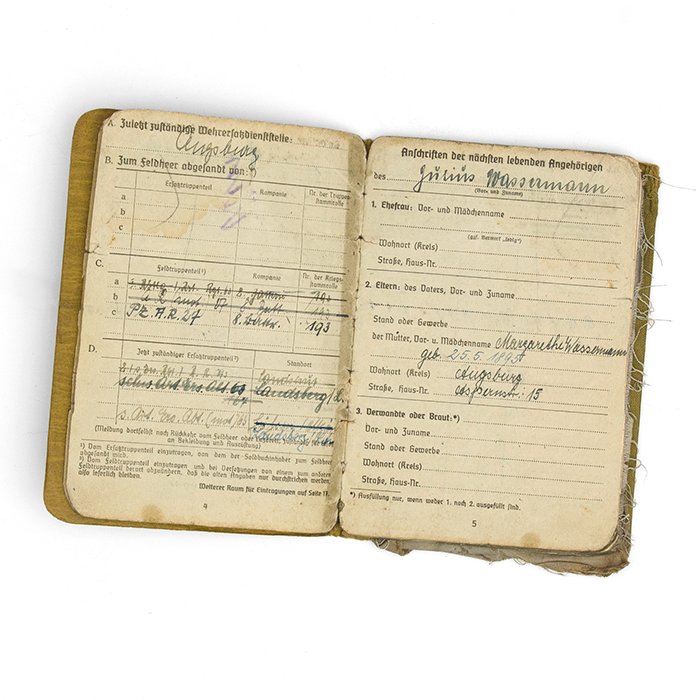 A. Zuletzt zuständige Wehrersatzdienststelle:
Augsburg
B. Zum Feldheer abgesandt von:¹)
Ersatztruppenteil Kompanie Nr. der Truppenstammrolle
a
b
c
C.
Feldtruppenteil²) Kompanie Nr. der Kriegsstammrolle
a
b
c Pz. A.R. 27 8. Battr. 193
D.
Jetzt zuständiger Ersatztruppenteil²) Standort
Landsberg
(Meldung dortselbst nach Rückkehr vom Feldheer oder
an Bekleidung und Ausrüstung)
¹) Vom Ersatztruppenteil einzutragen, von dem der Soldbuchinhaber zum Feldheer
abgesandt wird.
²) Vom Feldtruppenteil einzutragen und bei Versetzungen von einem zum anderen
Feldtruppenteil derart abzuändern, daß die alten Angaben nur durchstrichen werden,
also leserlich bleiben.
Weiterer Raum für Eintragungen auf Seite 17.
4
Anschriften der nächsten lebenden Angehörigen
des Julius Wassermann
(Vor- und Zuname)
1. Ehefrau: Vor- und Mädchenname
(ggf. Vermerk „ledig")
Wohnort (Kreis)
Straße, Haus-Nr.
2. Eltern: des Vaters, Vor- und Zuname
Stand oder Gewerbe
der Mutter, Vor- u. Mädchenname Margarethe Wassermann
geb. 25.5.1895
Wohnort (Kreis) Augsburg
Straße, Haus-Nr. 15
3. Verwandte oder Braut:*)
Vor- und Zuname
Stand oder Gewerbe
Wohnort (Kreis)
Straße, Haus-Nr.
*) Ausfüllung nur, wenn weder 1. noch 2. ausgefüllt sind.
5